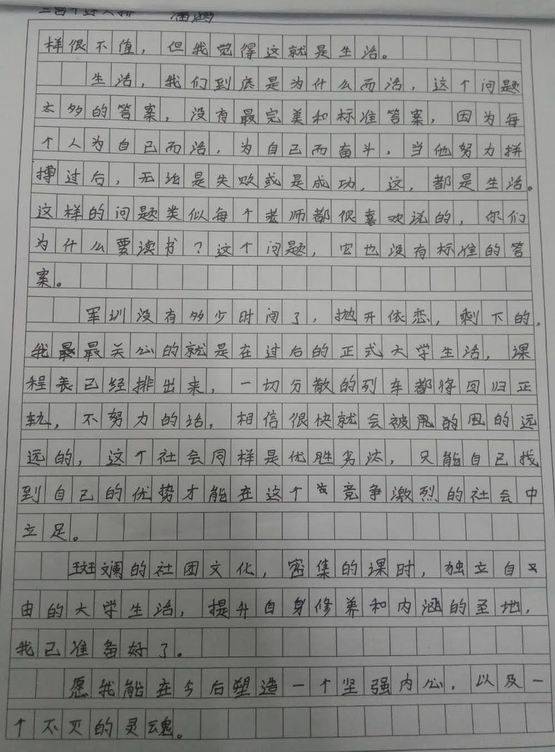 样很不值，但我觉得这就是生活。
生活，我们到底是为什么而活，这个问题
太多的答案，没有最完美和标准答案，因为每
个人为自己而活，为自己而奋斗，当他努力拼
搏过后，无论是失败或是成功，这，都是生活。
这样的问题类似每个老师都很喜欢说的，你们
为什么要读书？这个问题，它也没有标准的答
案。
军训没有多少时间了，抛开依恋，剩下的，
我最最关心的就是在过后的正式大学生活，课
程表已经排出来，一切分散的列车都将回归正
轨，不努力的话，相信很快就会被甩的甩的远
远的，这个社会同样是优胜劣汰，只能自己找
到自己的优势才能在这个竞争激烈的社会中
立足。
斑斓的社团文化，密集的课时，独立自
由的大学生活，提升自身修养和内涵的圣地，
我已准备好了。
愿我能在今后塑造一个坚强内心，以及一
个不灭的灵魂。